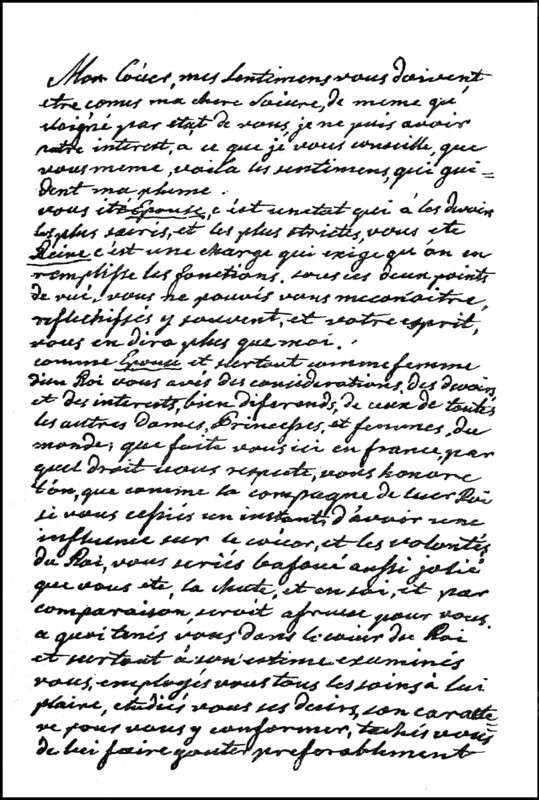 Mon Coëur, mes sentimens vous doivent
etre comus ma chere Soeure, de meme qu'
eloigné par etat de vous, je ne puis avoir
autre interest, a ce que je vous conseille, que
vous meme, voila les sentimens, qui gui=
dent ma plume.
vous ite Epouse, c'est un etat qui à les devoirs
les plus sacrés, et les plus strictes, vous ete
Reine c'est une charge qui exige qu'on en
remplisse les fonctions. sous ces deux points
de vuë, vous ne pouvés vous meconaitre,
reflechissés y souvent, et votre esprit,
vous en dira plus que moi.
comme Epouse et surtout comme femme
d'un Roi vous avés des considerations, des devoirs
et des interets, bien diferends, de ceux de toutes
les autres Dames, Princesses, et femmes, du
monde; que faite vous ici en france, par
quel droit vous respecte, vous honore
t'on, que comme la compagne de leur Roi
si vous cessiés un instant, d'avoir une
influence sur le coëur, et les volontés
du Roi, vous seriés bafoué aussi jolié
que vous ete, la chute, et en soi, et par
comparaison, seroit afreuse pour vous.
a quoi tenés vous dans le coeur du Roi
et surtout à son estime examinés
vous, employés vous tous les soins à lui
plaire, etudiés vous ses desirs, son caracte
re pour vous y conformer, tachés vous
de lui faire gouter preferablement